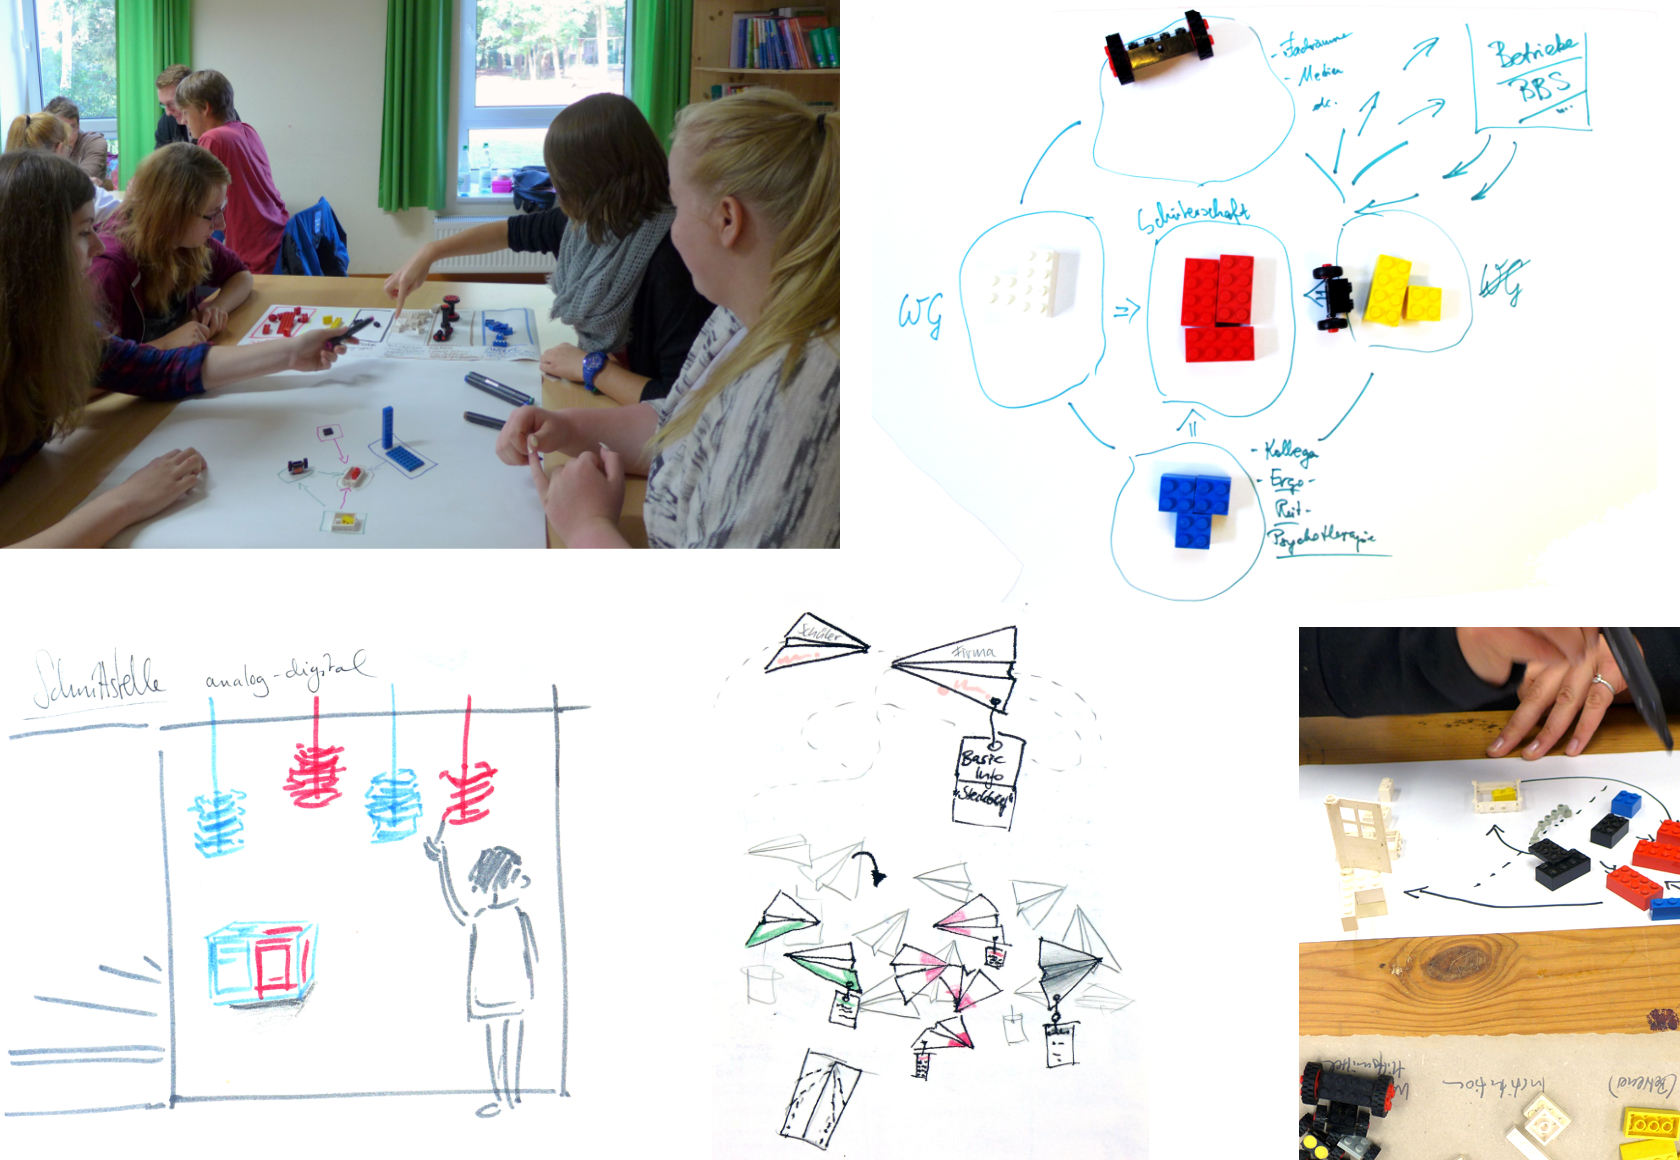 - Fachräume
- Medien
etc.
Betriebe
BBS
...
Schülerschaft
WG
WG
- Kollega
- Ergo-
Reit-
Psychotherapie
Schnittstelle analog-digital
Schüler
Firma
Basic
Info
"Steckbrief"
Hilfsmittel
Institution